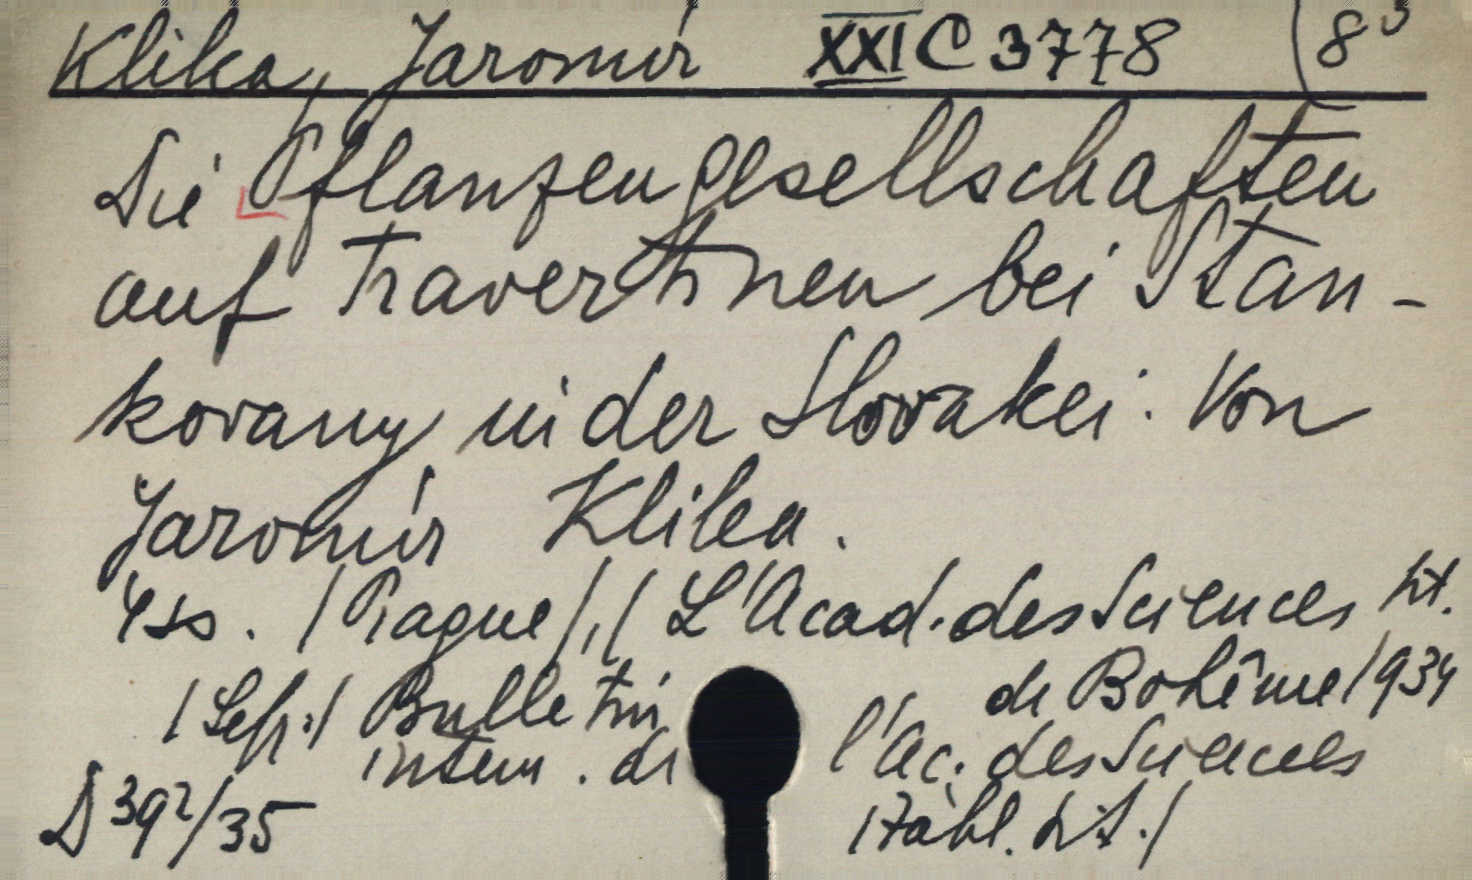 Klika, Jaromír XXI C 3778 (8°
Die Pflanzengesellschaften
auf Travertinen bei Stan-
kovany in der Slovakei. Von
Jaromír Klika.
4 ss. /Prague/, / L'Acad. des Sciences
de Bohême/ 1934
/Sep:/ Bulletin
intern. de l'Ac. des Sciences
D 392/35